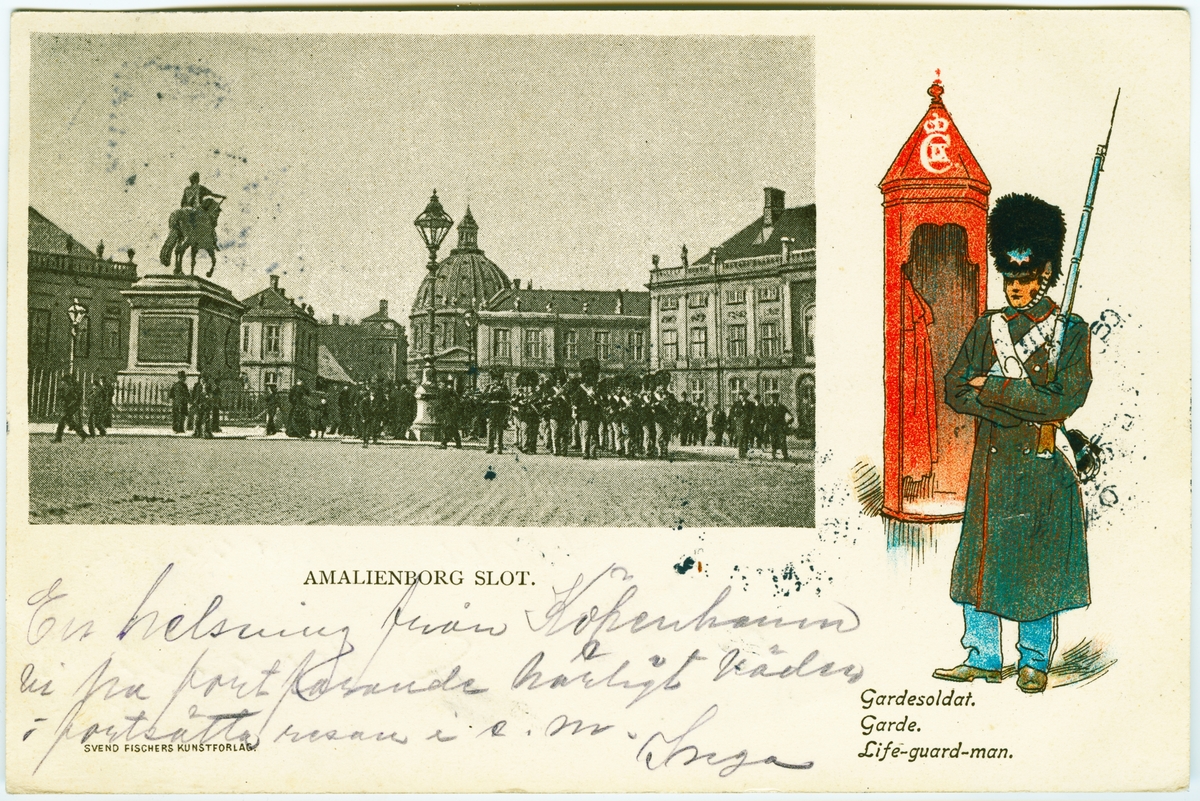 AMALIENBORG SLOT.
En helsning från Köpenhamn
vi ha fortfarande härligt väder
fortsätta resan i e. m.
Inga
SVEND FISCHERS KUNSTFORLAG.
Gardesoldat.
Garde.
Life-guard-man.